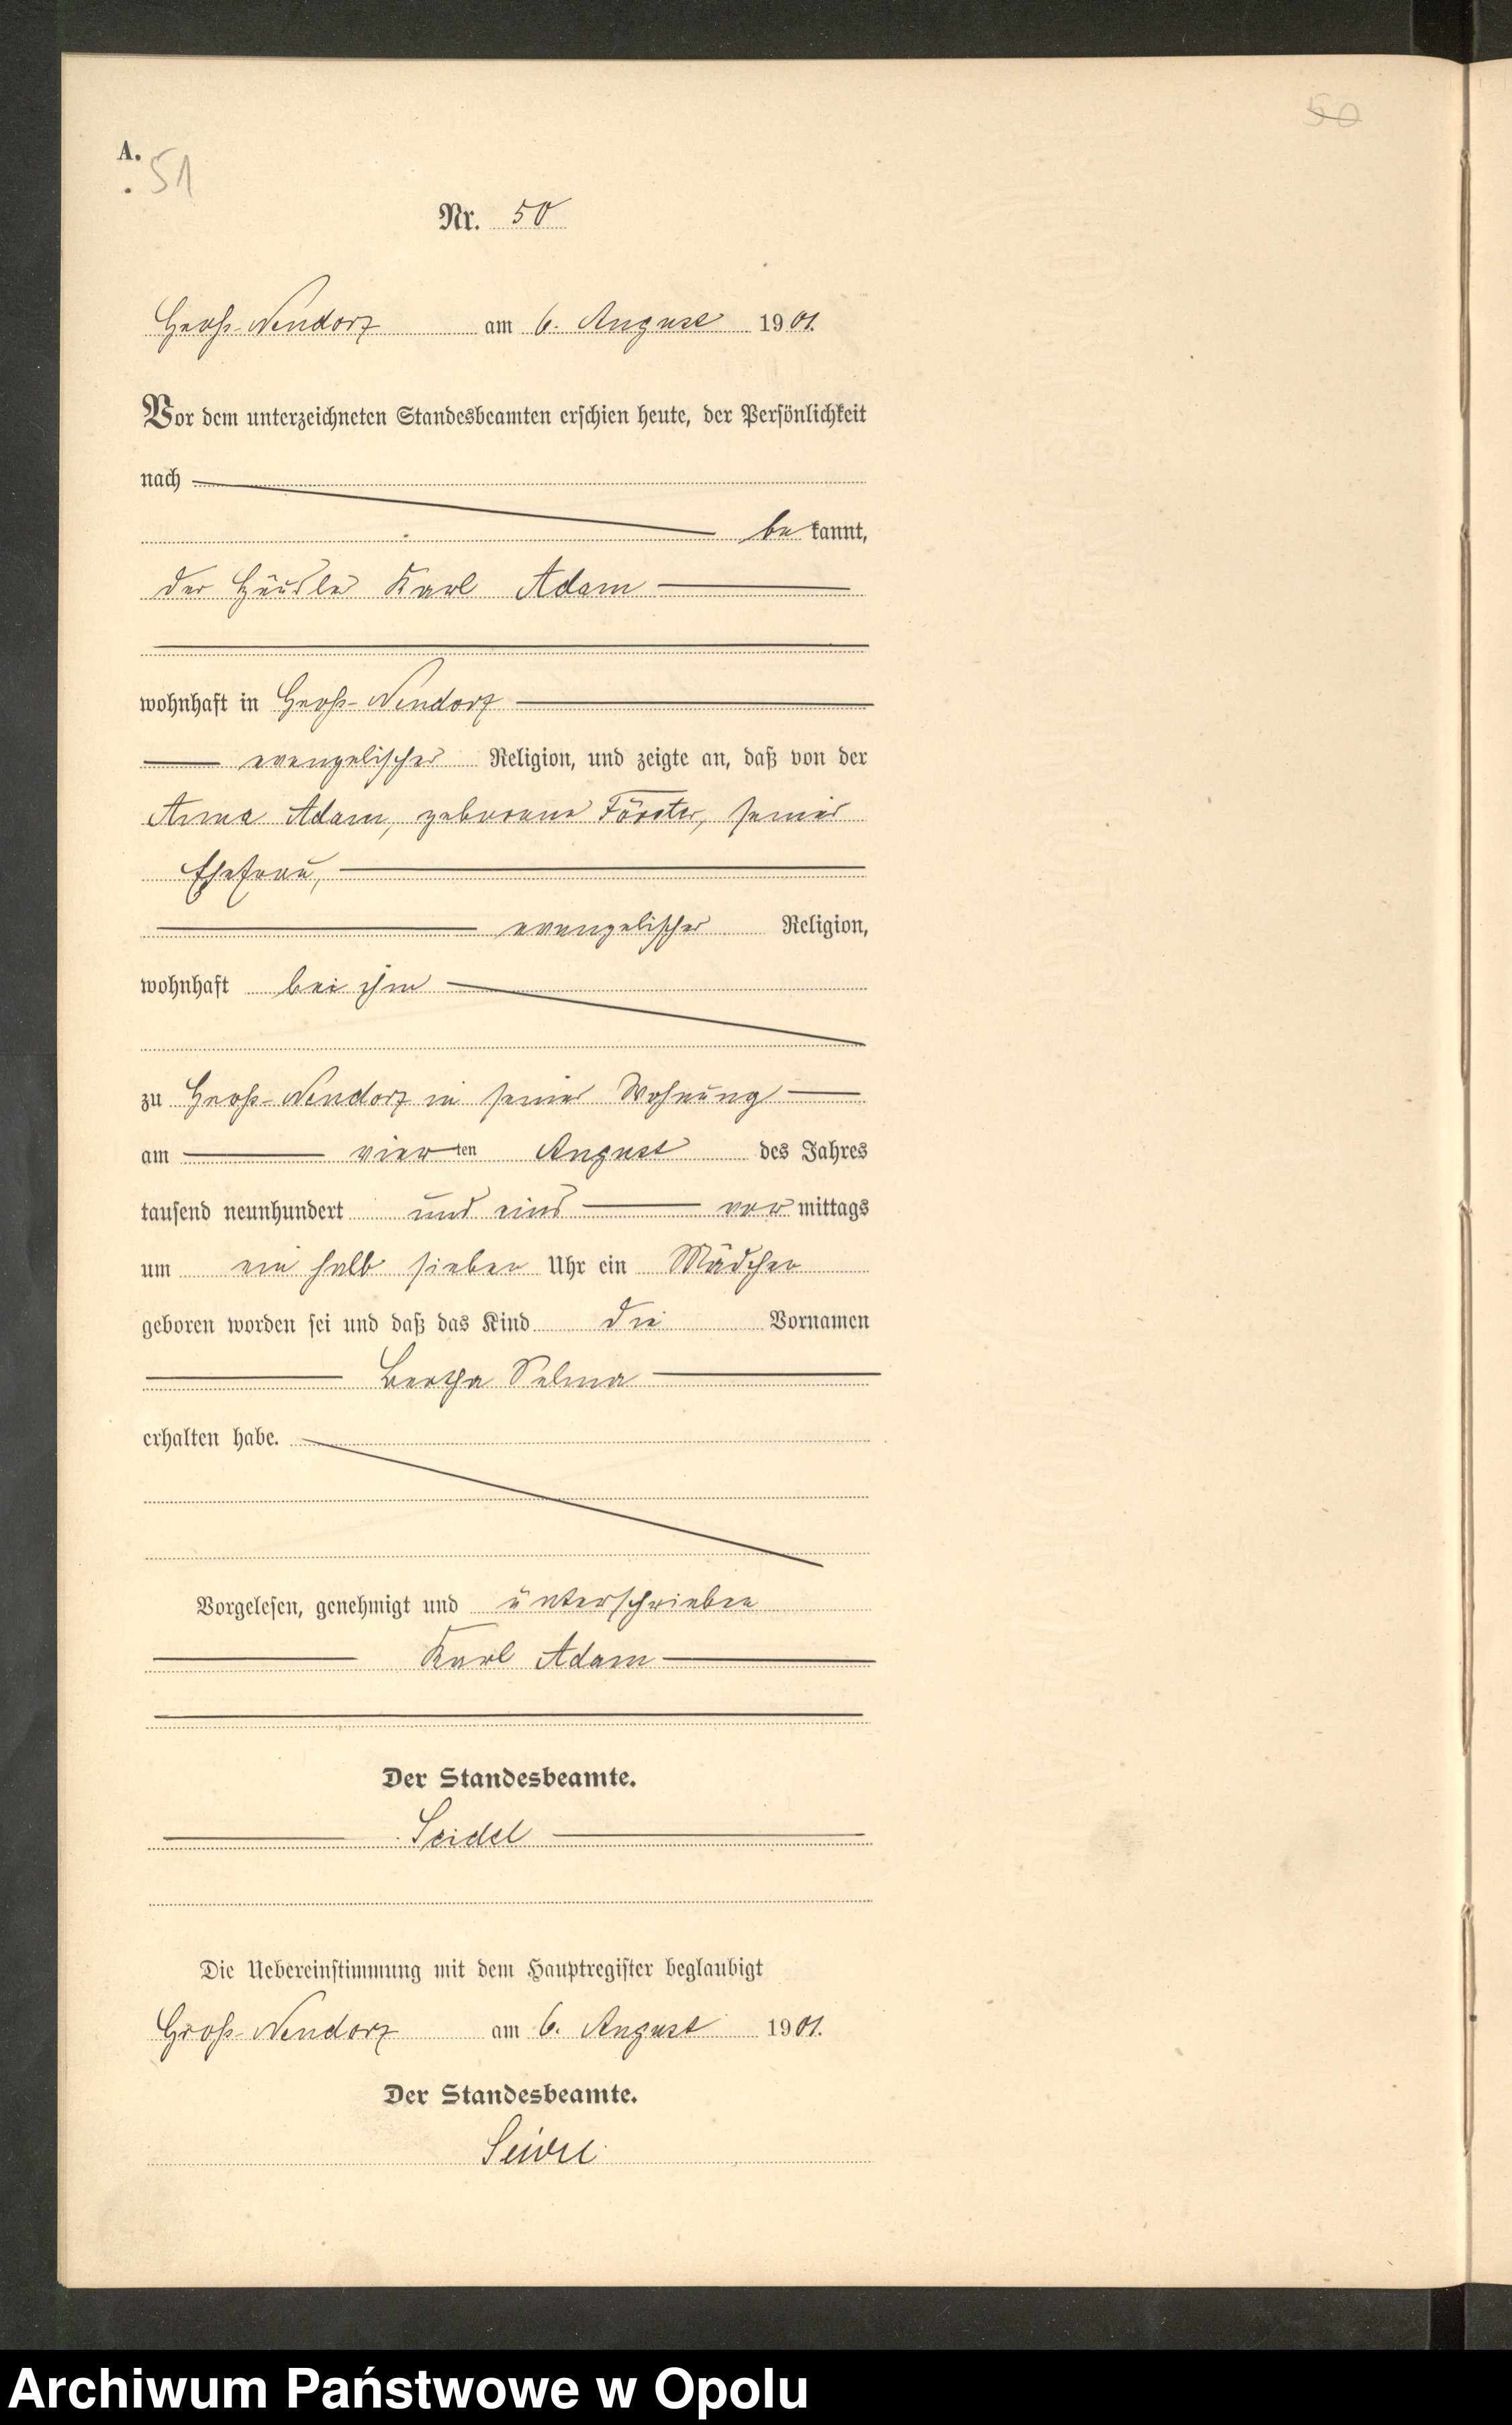 50
A.
51
Nr. 50
Groß-Neudorf am 6. August 1901.
Vor dem unterzeichneten Standesbeamten erschien heute, der Persönlichkeit
nach
bekannt,
der Häusler Karl Adam
wohnhaft in Groß-Neudorf
evangelischer Religion, und zeigte an, daß von der
Anna Adam, geborene Förster, seiner
Ehefrau,
evangelischer Religion,
wohnhaft bei ihm
zu Groß-Neudorf in seiner Wohnung
am vierten August des Jahres
tausend neunhundert und eins vormittags
um ein halb sieben Uhr ein Mädchen
geboren worden sei und daß das Kind die Vornamen
Bertha Selma
erhalten habe.
Vorgelesen, genehmigt und unterschrieben
Karl Adam
Der Standesbeamte.
Seidel
Die Uebereinstimmung mit dem Hauptregister beglaubigt
Groß-Neudorf am 6. August 1901.
Der Standesbeamte.
Seidel
Archiwum Państwowe w Opolu